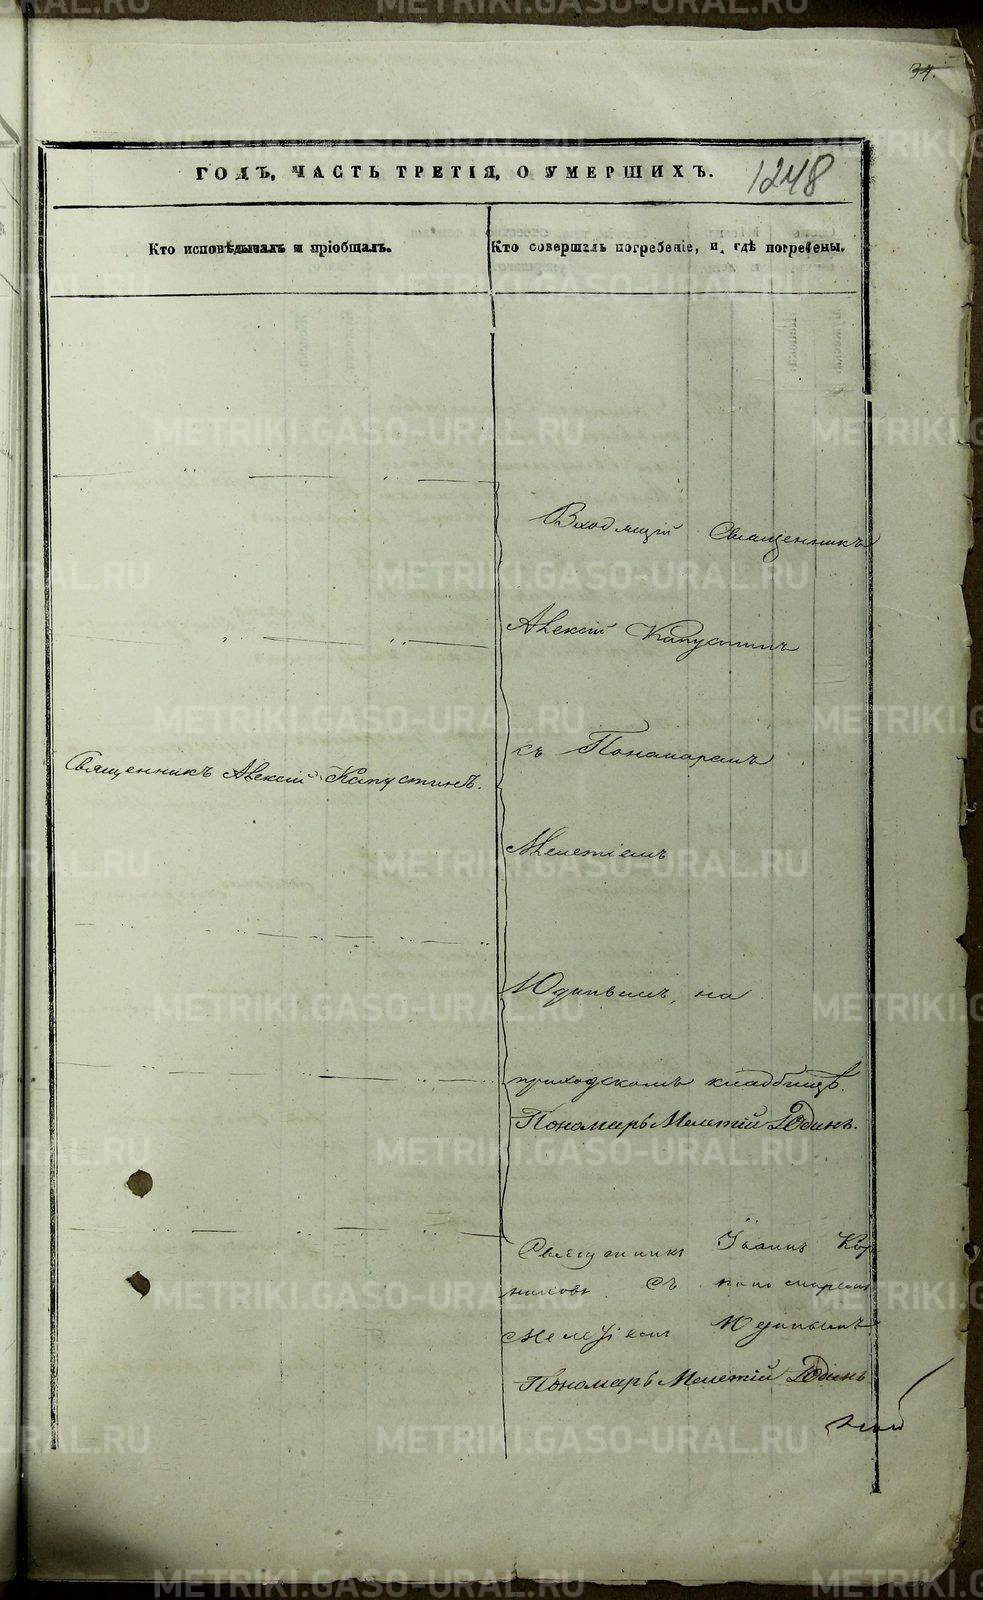 34.
ГОДЪ, ЧАСТЬ ТРЕТІЯ, О УМЕРШИХЪ.
1248
Кто исповѣдывалъ и пріобщалъ.
Кто совершалъ погребеніе, и гдѣ погребены.
Входящій Священникъ
Алексій Капустинъ
съ Пономаремъ
Священникъ Алексій Капустинъ.
Мелетіемъ
Юдинымъ, на
приходскомъ кладбищѣ.
Пономарь Мелетій Юдинъ.
Священникъ Іоаннъ Кор
ниловъ съ пономаремъ
Мелетіемъ Юдинымъ
Пономарь Мелетій Юдинъ
METRIKI.GASO-URAL.RU